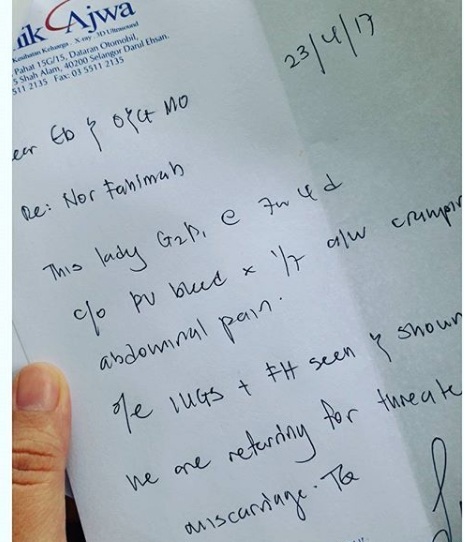 ik Ajwa
Kesihatan Keluarga . X-ray . 3D Ultrasound
Pahat 15G/15, Dataran Otomobil,
5 Shah Alam, 40200 Selangor Darul Ehsan.
511 2135 Fax: 03 5511 2135
23/4/17
ear ED & O&G MO
Re: Nor Fahimah
This lady G2P1 @ 7w4d
c/o PV bleed x 1/7 a/w crampin
abdominal pain.
o/e IUGS + FH seen & shown
We are referring for threate
miscarriage. TQ